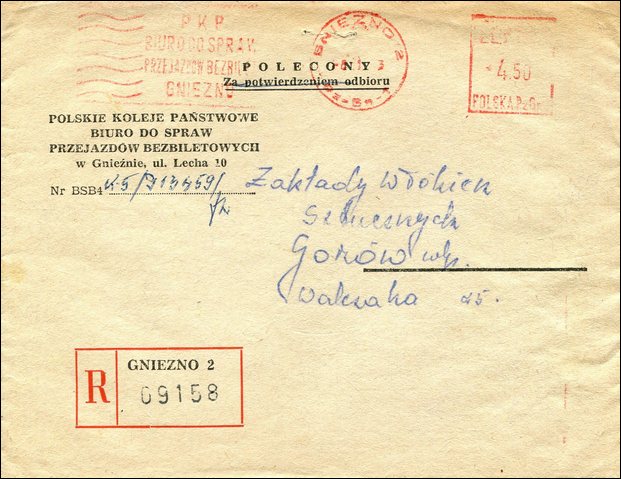 P.K.P.
BIURO DO SPRAW
PRZEJAZDÓW BEZBIL
GNIEZNO
GNIEZNO 2
4.50
POLSKA
POLECONY
Za potwierdzeniem odbioru
POLSKIE KOLEJE PAŃSTWOWE
BIURO DO SPRAW
PRZEJAZDÓW BEZBILETOWYCH
w Gnieźnie, ul. Lecha 10
Nr BSB4
Zakłady Włókien
Sztucznych
Gorzów wlp.
Walczaka 25.
R
GNIEZNO 2
09158